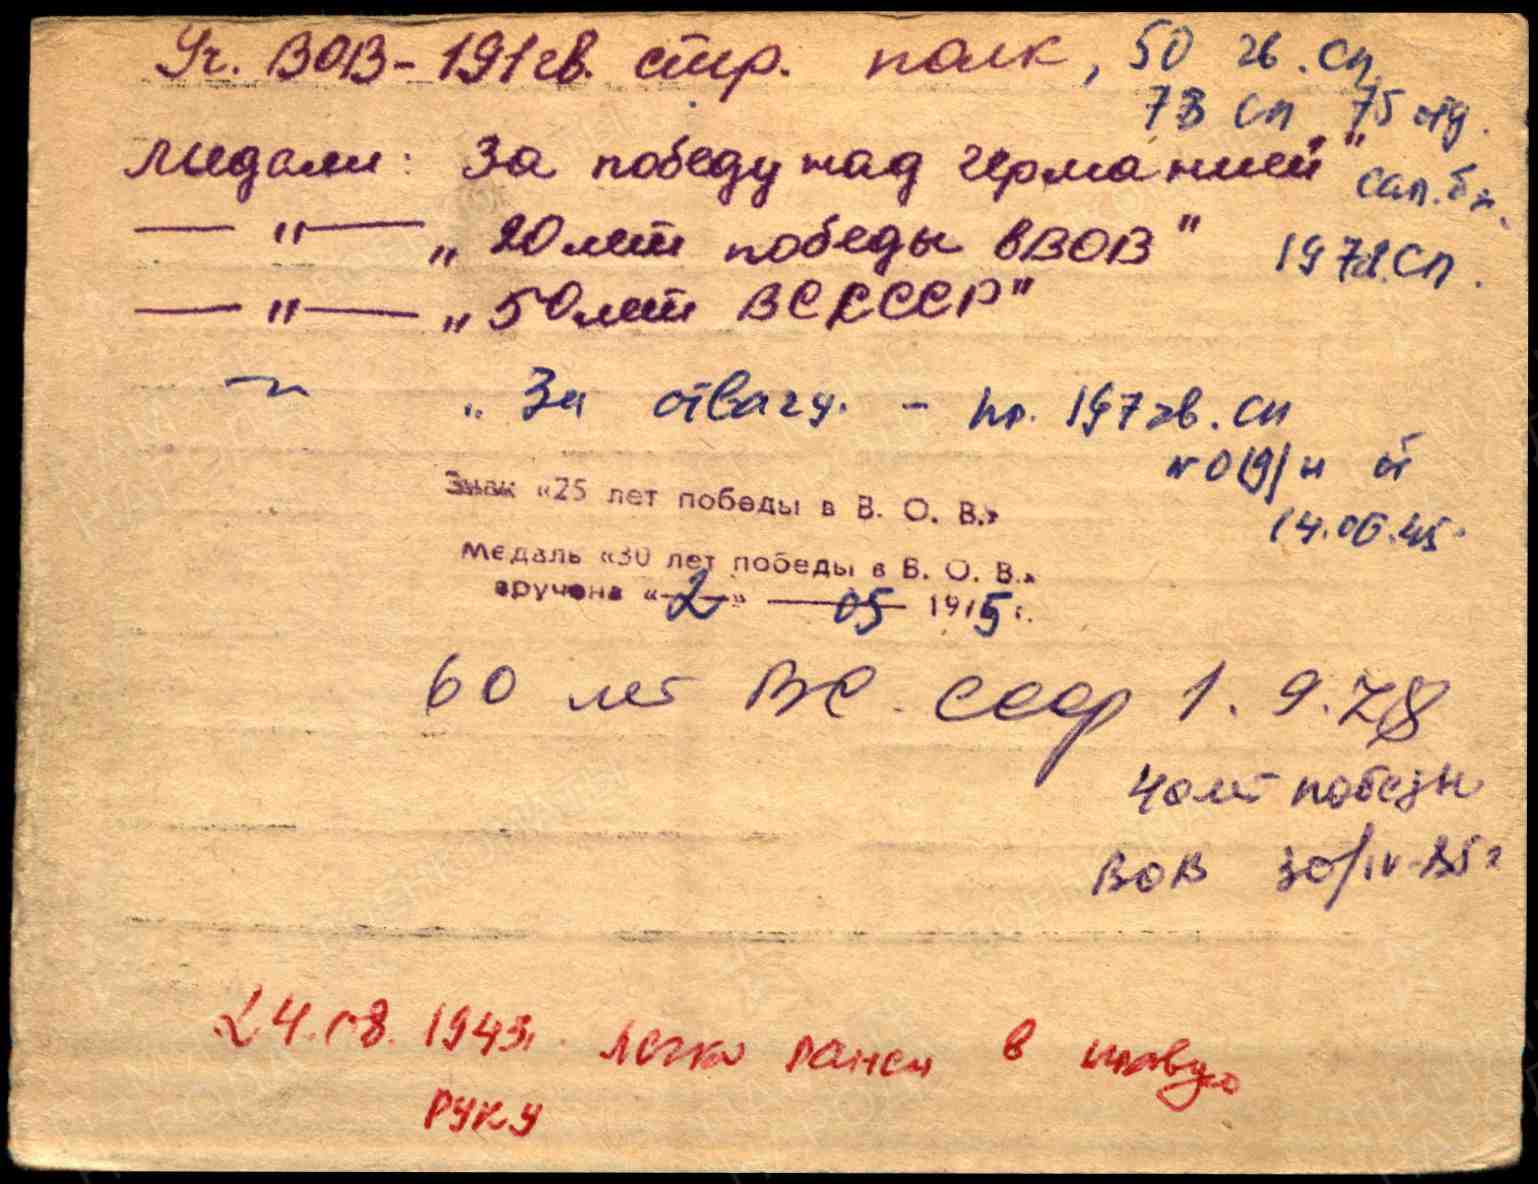 Уч. ВОВ - 191 гв. стр. полк, 50 гв. сп,
73 сп 75 отд.
Медали: За победу над германией"
сап. бн.
— " — „20 лет победы в ВОВ"
197 сп.
— " — „50 лет ВС СССР"
„За отвагу. - пр. 197 гв. сп
№ 019/н от
14.06.45
Знак «25 лет победы в В. О. В.»
Медаль «30 лет победы в В. О. В.»
вручена «2» 05 1975 г.
60 лет ВС СССР 1.9.78
40 лет победы
ВОВ 30/IV-85 г
24.08.1943г. легко ранен в
руку